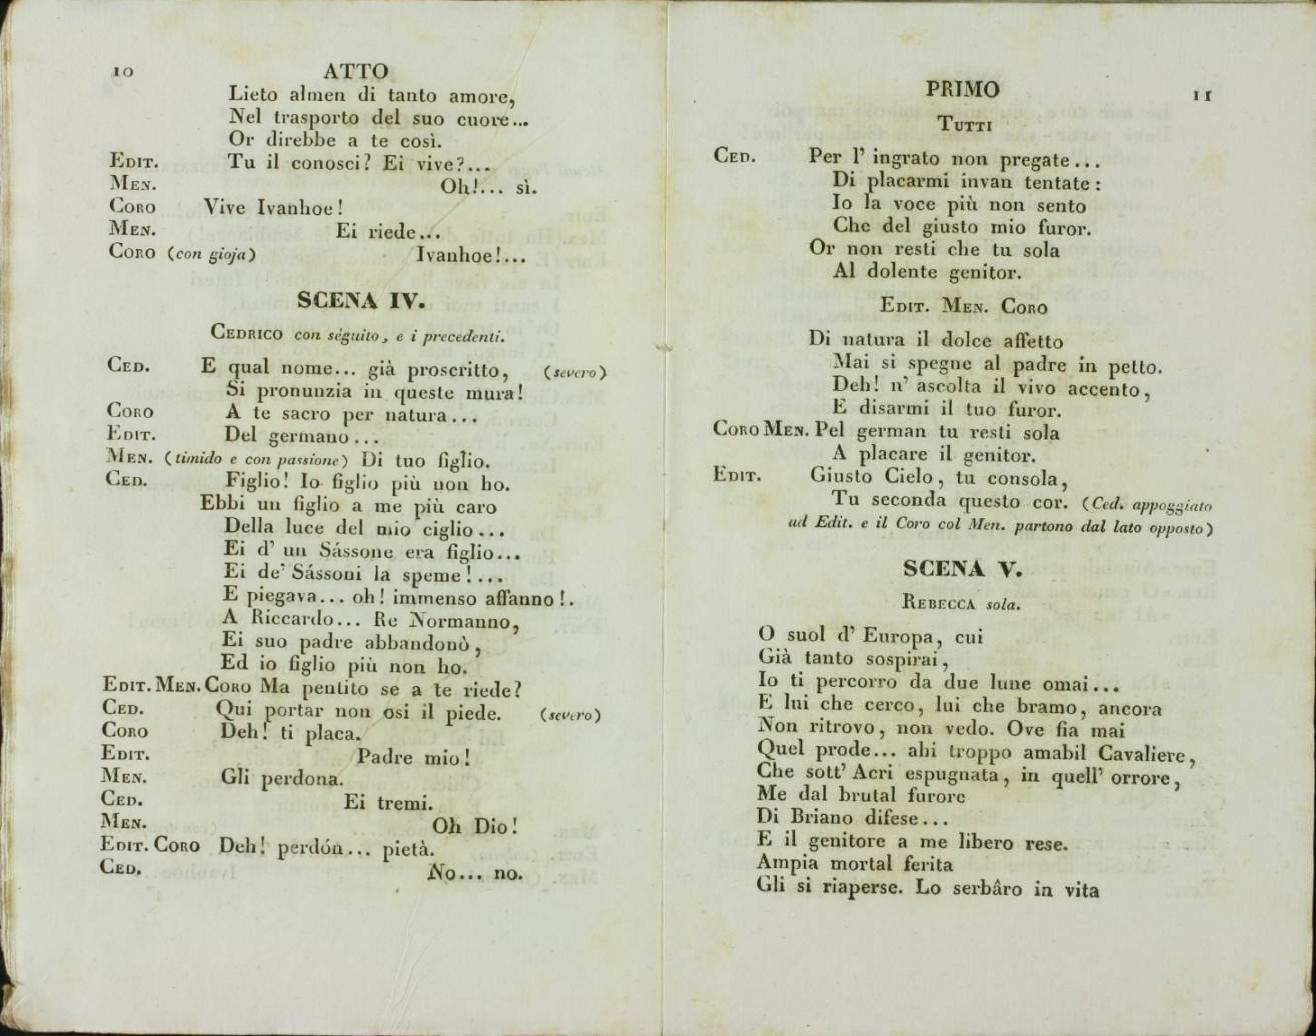 10 ATTO
Lieto almen di tanto amore,
Nel trasporto del suo cuore...
Or direbbe a te così.
EDIT. Tu il conosci? Ei vive?...
MEN. Oh!... sì.
CORO Vive Ivanhoe!
MEN. Ei riede...
CORO (con gioja) Ivanhoe!...
SCENA IV.
CEDRICO con séguito, e i precedenti.
CED. E qual nome... già proscritto, (severo)
Si pronunzia in queste mura!
CORO A te sacro per natura...
EDIT. Del germano...
MEN. (timido e con passione) Di tuo figlio.
CED. Figlio! Io figlio più non ho.
Ebbi un figlio a me più caro
Della luce del mio ciglio...
Ei d' un Sássone era figlio...
Ei de' Sássoni la speme!...
E piegava... oh! immenso affanno!.
A Riccardo... Re Normanno,
Ei suo padre abbandonò,
Ed io figlio più non ho.
EDIT. MEN. CORO Ma pentito se a te riede?
CED. Qui portar non osi il piede. (severo)
CORO Deh! ti placa.
EDIT. Padre mio!
MEN. Gli perdona.
CED. Ei tremi.
MEN. Oh Dio!
EDIT. CORO Deh! perdón... pietà.
CED. No... no.
PRIMO 11
TUTTI
CED. Per l' ingrato non pregate...
Di placarmi invan tentate:
Io la voce più non sento
Che del giusto mio furor.
Or non resti che tu sola
Al dolente genitor.
EDIT. MEN. CORO
Di natura il dolce affetto
Mai si spegne al padre in petto.
Deh! n' ascolta il vivo accento,
E disarmi il tuo furor.
CORO MEN. Pel german tu resti sola
A placare il genitor.
EDIT. Giusto Cielo, tu consola,
Tu seconda questo cor. (Ced. appoggiato
ad Edit. e il Coro col Men. partono dal lato opposto)
SCENA V.
REBECCA sola.
O suol d' Europa, cui
Già tanto sospirai,
Io ti percorro da due lune omai...
E lui che cerco, lui che bramo, ancora
Non ritrovo, non vedo. Ove fia mai
Quel prode... ahi troppo amabil Cavaliere,
Che sott' Acri espugnata, in quell' orrore,
Me dal brutal furore
Di Briano difese...
E il genitore a me libero rese.
Ampia mortal ferita
Gli si riaperse. Lo serbâro in vita